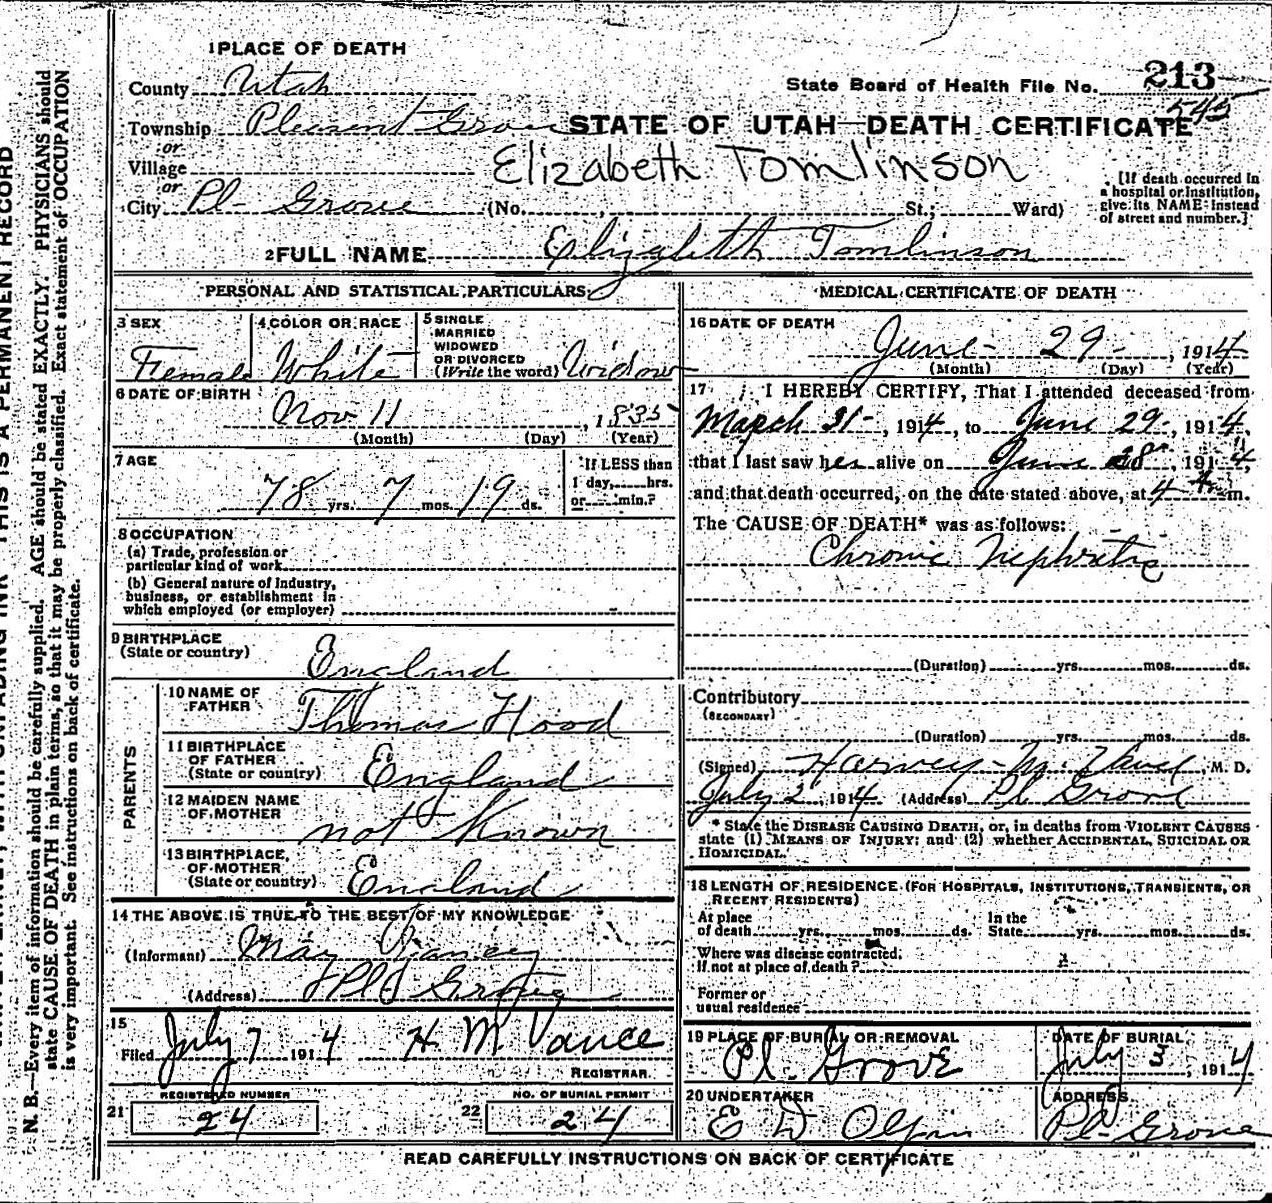 1 PLACE OF DEATH
County Utah
State Board of Health File No. 213
545
Township Pleasant Grove
or
STATE OF UTAH—DEATH CERTIFICATE
Village
or
Elizabeth Tomlinson
City Pl- Grove (No. , St.; Ward)
[If death occurred in
a hospital or institution,
give its NAME instead
of street and number.]
2 FULL NAME Elizabeth Tomlinson
PERSONAL AND STATISTICAL PARTICULARS
3 SEX
Female
4 COLOR OR RACE
White
5 SINGLE
MARRIED
WIDOWED
OR DIVORCED
(Write the word) Widow
6 DATE OF BIRTH
Nov 11, 1835
(Month) (Day) (Year)
7 AGE
78 yrs. 7 mos. 19 ds.
If LESS than
1 day, hrs.
or min.?
8 OCCUPATION
(a) Trade, profession or
particular kind of work
(b) General nature of Industry,
business, or establishment in
which employed (or employer)
9 BIRTHPLACE
(State or country) England
PARENTS
10 NAME OF
FATHER Thomas Hood
11 BIRTHPLACE
OF FATHER
(State or country) England
12 MAIDEN NAME
OF MOTHER not Known
13 BIRTHPLACE
OF MOTHER
(State or country) England
14 THE ABOVE IS TRUE TO THE BEST OF MY KNOWLEDGE
(Informant) May
(Address) Pl Grove
15
Filed July 7 1914 H. M. Vance
REGISTRAR.
REGISTERED NUMBER
21 24
NO. OF BURIAL PERMIT
22 24
MEDICAL CERTIFICATE OF DEATH
16 DATE OF DEATH
June- 29-, 1914
(Month) (Day) (Year)
17 I HEREBY CERTIFY, That I attended deceased from
March 31-, 1914, to June 29-, 1914,
that I last saw her alive on June 28, 1914,
and that death occurred, on the date stated above, at 4 A m.
The CAUSE OF DEATH* was as follows:
Chronic Nephritis
(Duration) yrs. mos. ds.
Contributory
(SECONDARY)
(Duration) yrs. mos. ds.
(Signed) Harvey M. Vance, M. D.
July 2, 1914 (Address) Pl Grove
* State the DISEASE CAUSING DEATH, or, in deaths from VIOLENT CAUSES
state (1) MEANS OF INJURY; and (2) whether ACCIDENTAL, SUICIDAL OR
HOMICIDAL.
18 LENGTH OF RESIDENCE (FOR HOSPITALS, INSTITUTIONS, TRANSIENTS, OR
RECENT RESIDENTS)
At place
of death yrs. mos. ds.
In the
State yrs. mos. ds.
Where was disease contracted,
If not at place of death?
Former or
usual residence
19 PLACE OF BURIAL OR REMOVAL
Pl. Grove
DATE OF BURIAL
July 3, 1914
20 UNDERTAKER
E D Olpin
ADDRESS
Pl- Grove
READ CAREFULLY INSTRUCTIONS ON BACK OF CERTIFICATE
THIS IS A PERMANENT RECORD
N. B.—Every item of information should be carefully supplied. AGE should be stated EXACTLY. PHYSICIANS should
state CAUSE OF DEATH in plain terms, so that it may be properly classified. Exact statement of OCCUPATION
is very important. See instructions on back of certificate.